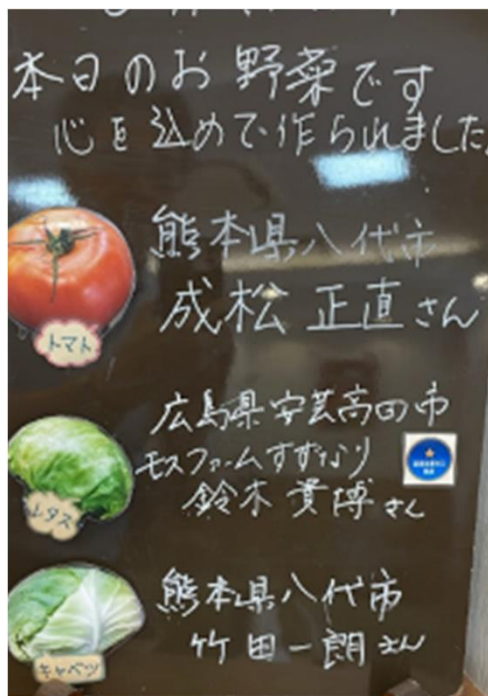 本日のお野菜です
心を込めて作られました
熊本県八代市
成松 正直さん
トマト
広島県安芸高田市
モスファームすずなり
鈴木貴博さん
レタス
熊本県八代市
竹田一朗さん
キャベツ